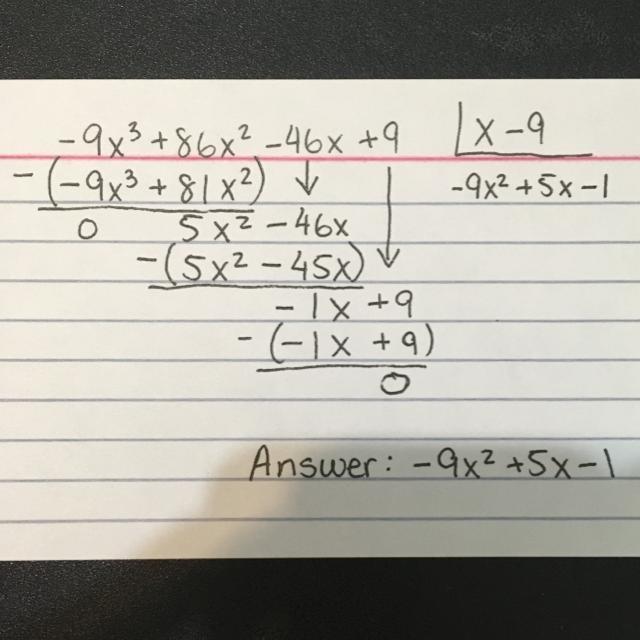 -9x³ + 86x² - 46x + 9 | x - 9
- (-9x³ + 81x²) ↓ -9x² + 5x - 1
0 5x² - 46x
- (5x² - 45x) ↓
- 1x + 9
- (-1x + 9)
0
Answer: -9x² + 5x - 1